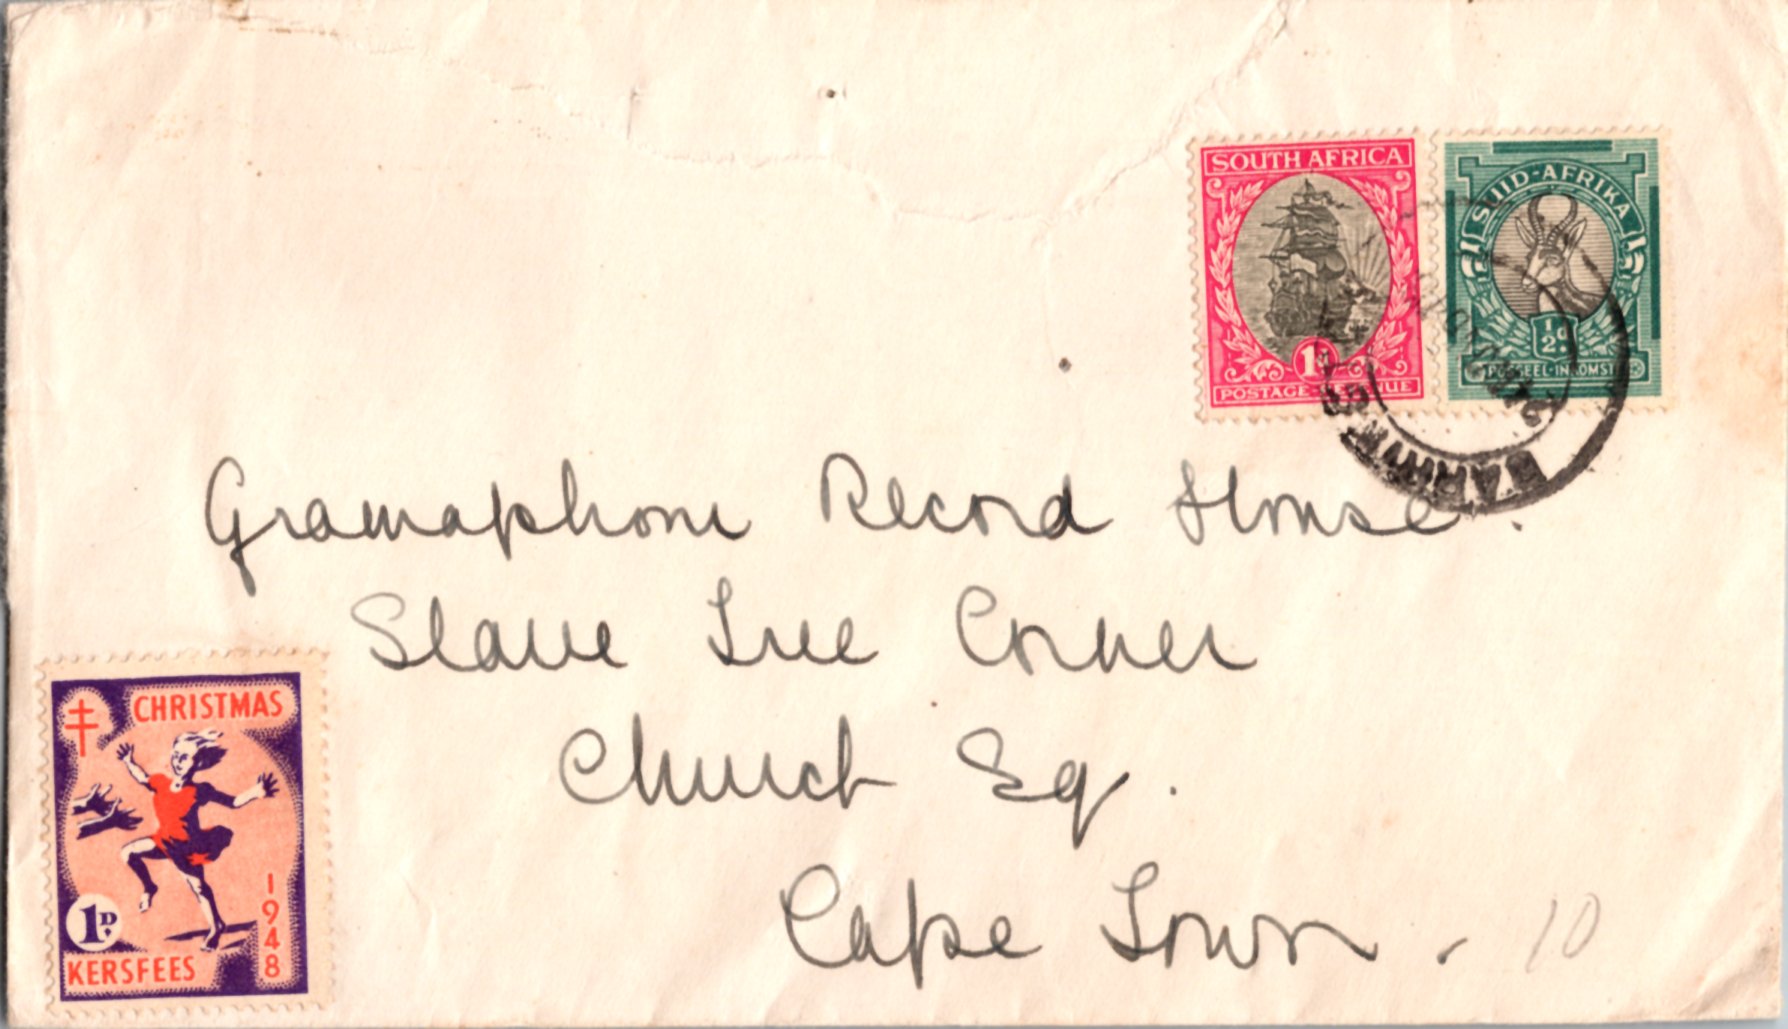 SOUTH AFRICA
1d
POSTAGE REVENUE
SUID-AFRIKA
1/2d.
POSSEEL-INKOMSTE
Gramaphone Record House.
Slave Tree Corner
Church Sq.
Cape Town.
10
CHRISTMAS
1948
1D.
KERSFEES